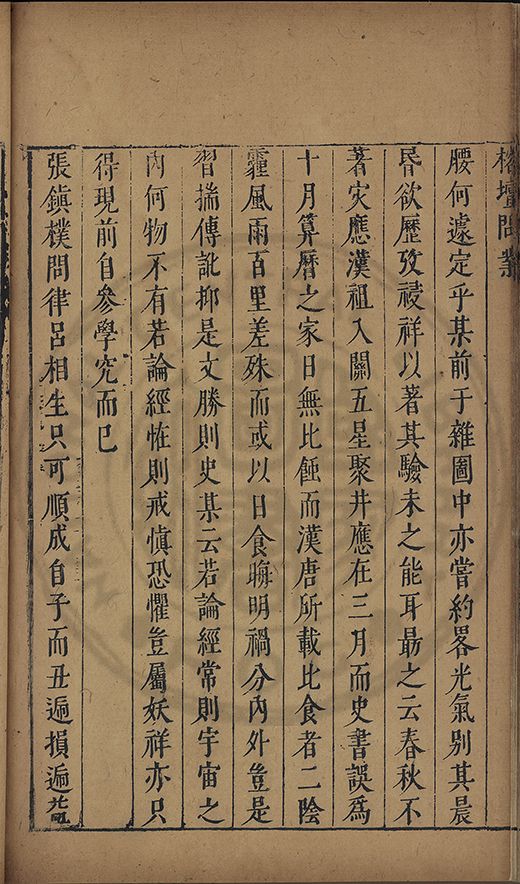 榕壇問業
腰何遽定乎某前于雜圖中亦嘗約畧光氣別其晨
昏欲歷攷祲祥以著其驗未之能耳最之云春秋不
著灾應漢祖入關五星聚井應在三月而史書誤爲
十月算曆之家日無比蝕而漢唐所載比食者二陰
霾風雨百里差殊而或以日食晦明禍分內外豈是
習揣傳訛抑是文勝則史某云若論經常則宇宙之
內何物不有若論經恠則戒慎恐懼豈屬妖祥亦只
得現前自參學究而已
張鎮樸問律呂相生只可順成自子而丑遍損遍益